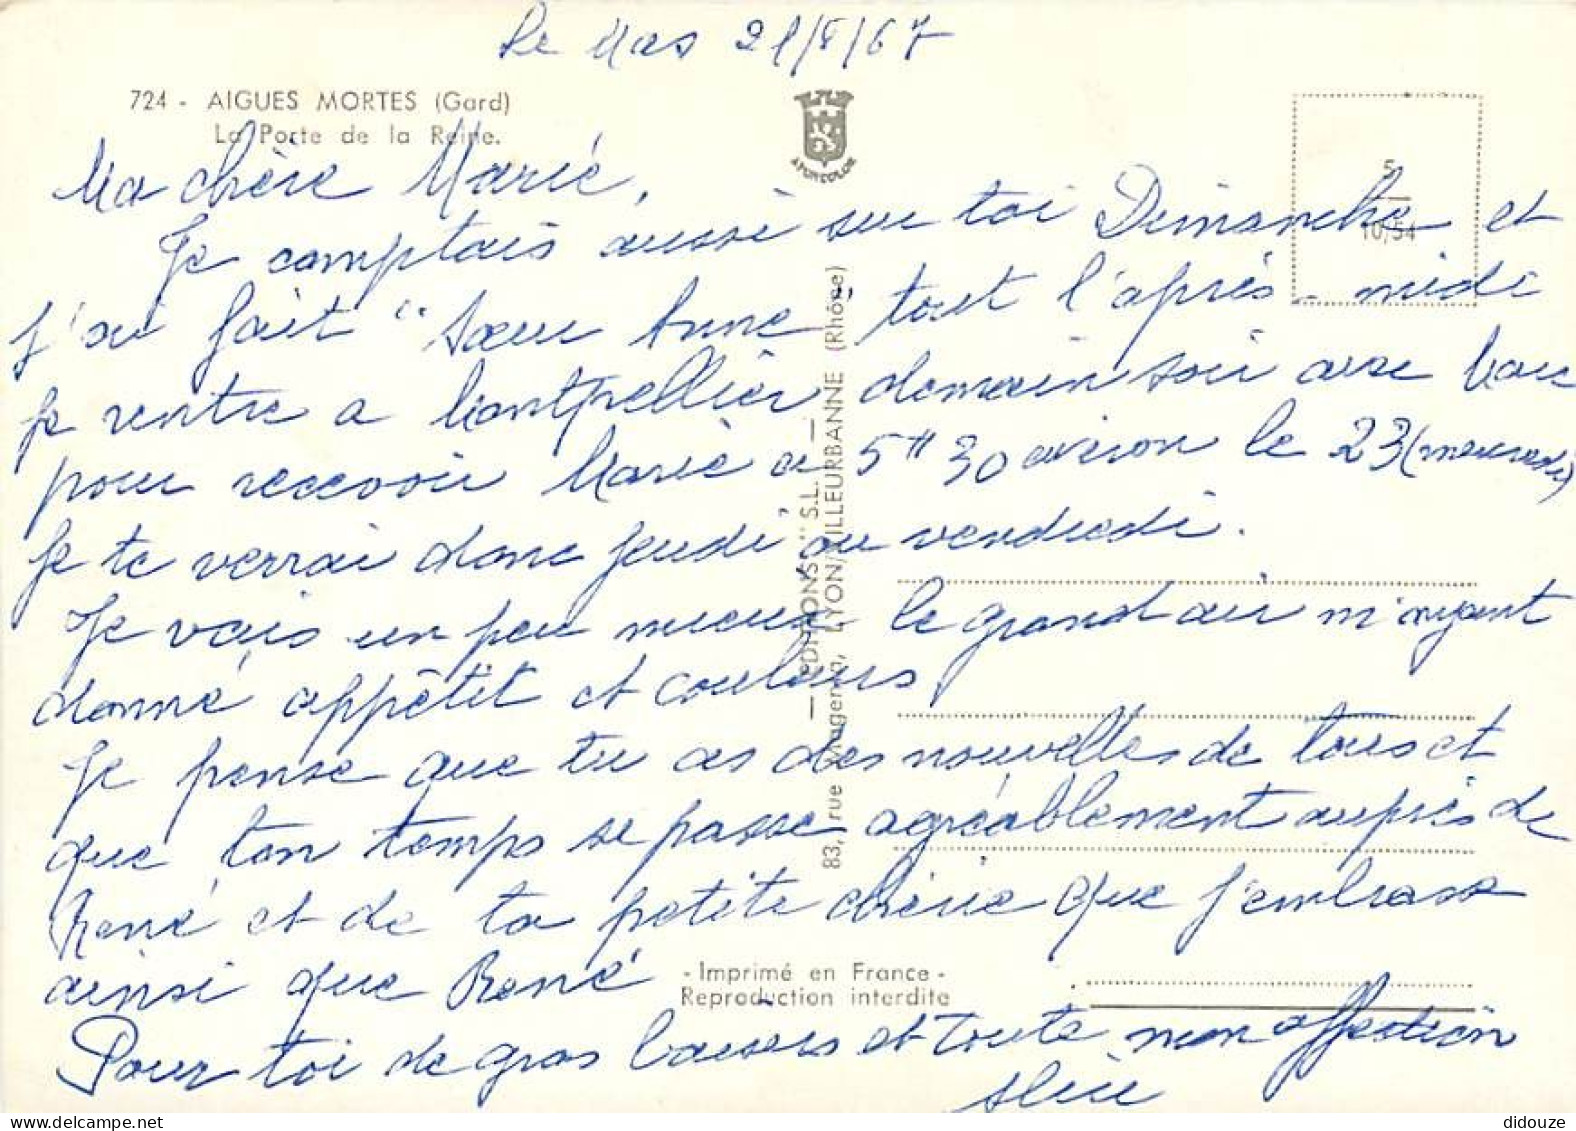 Le Mas 21/8/67
724 - AIGUES MORTES (Gard)
La Porte de la Reine.
APOLLCOLOR
5
10/54
Ma chère Marie,
Je comptais aussi sur toi Dimanche et
j'ai fait "Sœur Anne" tout l'après-midi
Je rentre a Montpellier demain soir avec
pour recevoir Marie a 5 H 30 avion le 23 (mercredi)
Je te verrai donc jeudi ou vendredi.
Je vais un peu mieux le grand air m'ayant
donné appêtit et couleurs
Je pense que tu as des nouvelles de tous et
que ton temps se passe agréablement auprès de
René et de ta petite chérie que j'embrasse
ainsi que René
Pour toi de gros baisers et toute mon affection
Alice
— EDITIONS "S.L." —
83, rue Magenta, LYON/VILLEURBANNE (Rhône)
- Imprimé en France -
Reproduction interdite
didouze